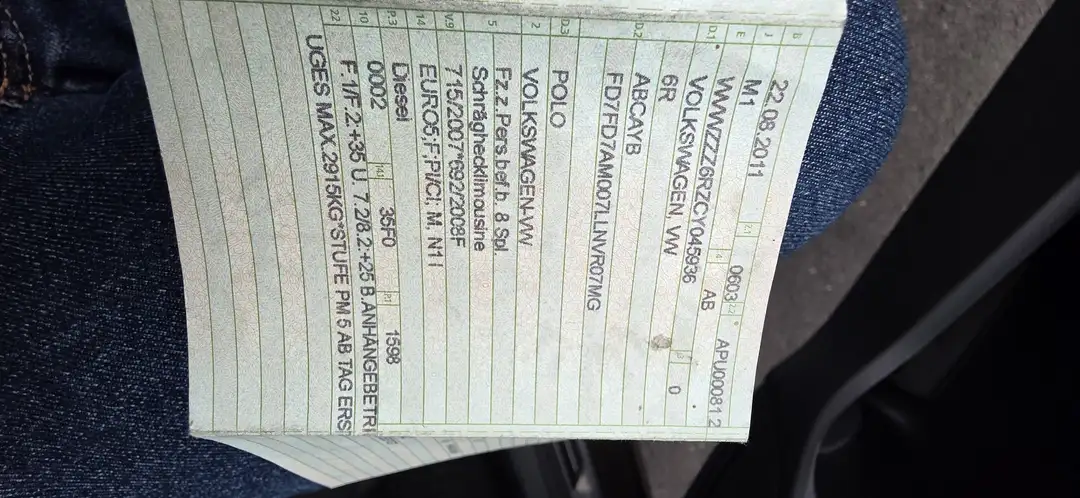 B 22.08.2011 2.1 0603 2.2 APU00081 2
J M1 4 AB
E WVWZZZ6RZCY045936 3 0
D.1 VOLKSWAGEN, VW
6R
D.2 ABCAYB
FD7FD7AM007LLNVR07MG
D.3 POLO
2 VOLKSWAGEN-VW
5 Fz.z.Pers.bef.b. 8 Spl.
Schräghecklimousine
V.9 715/2007*692/2008F
14 EURO5;F;PI/CI; M, N1 I
P.3 Diesel
10 0002 14.1 35F0 P.1 1598
22 F.1/F.2:+35 U. 7.2/8.2:+25 B.ANHANGEBETRI
UGES MAX.2915KG*STUFE PM 5 AB TAG ERS